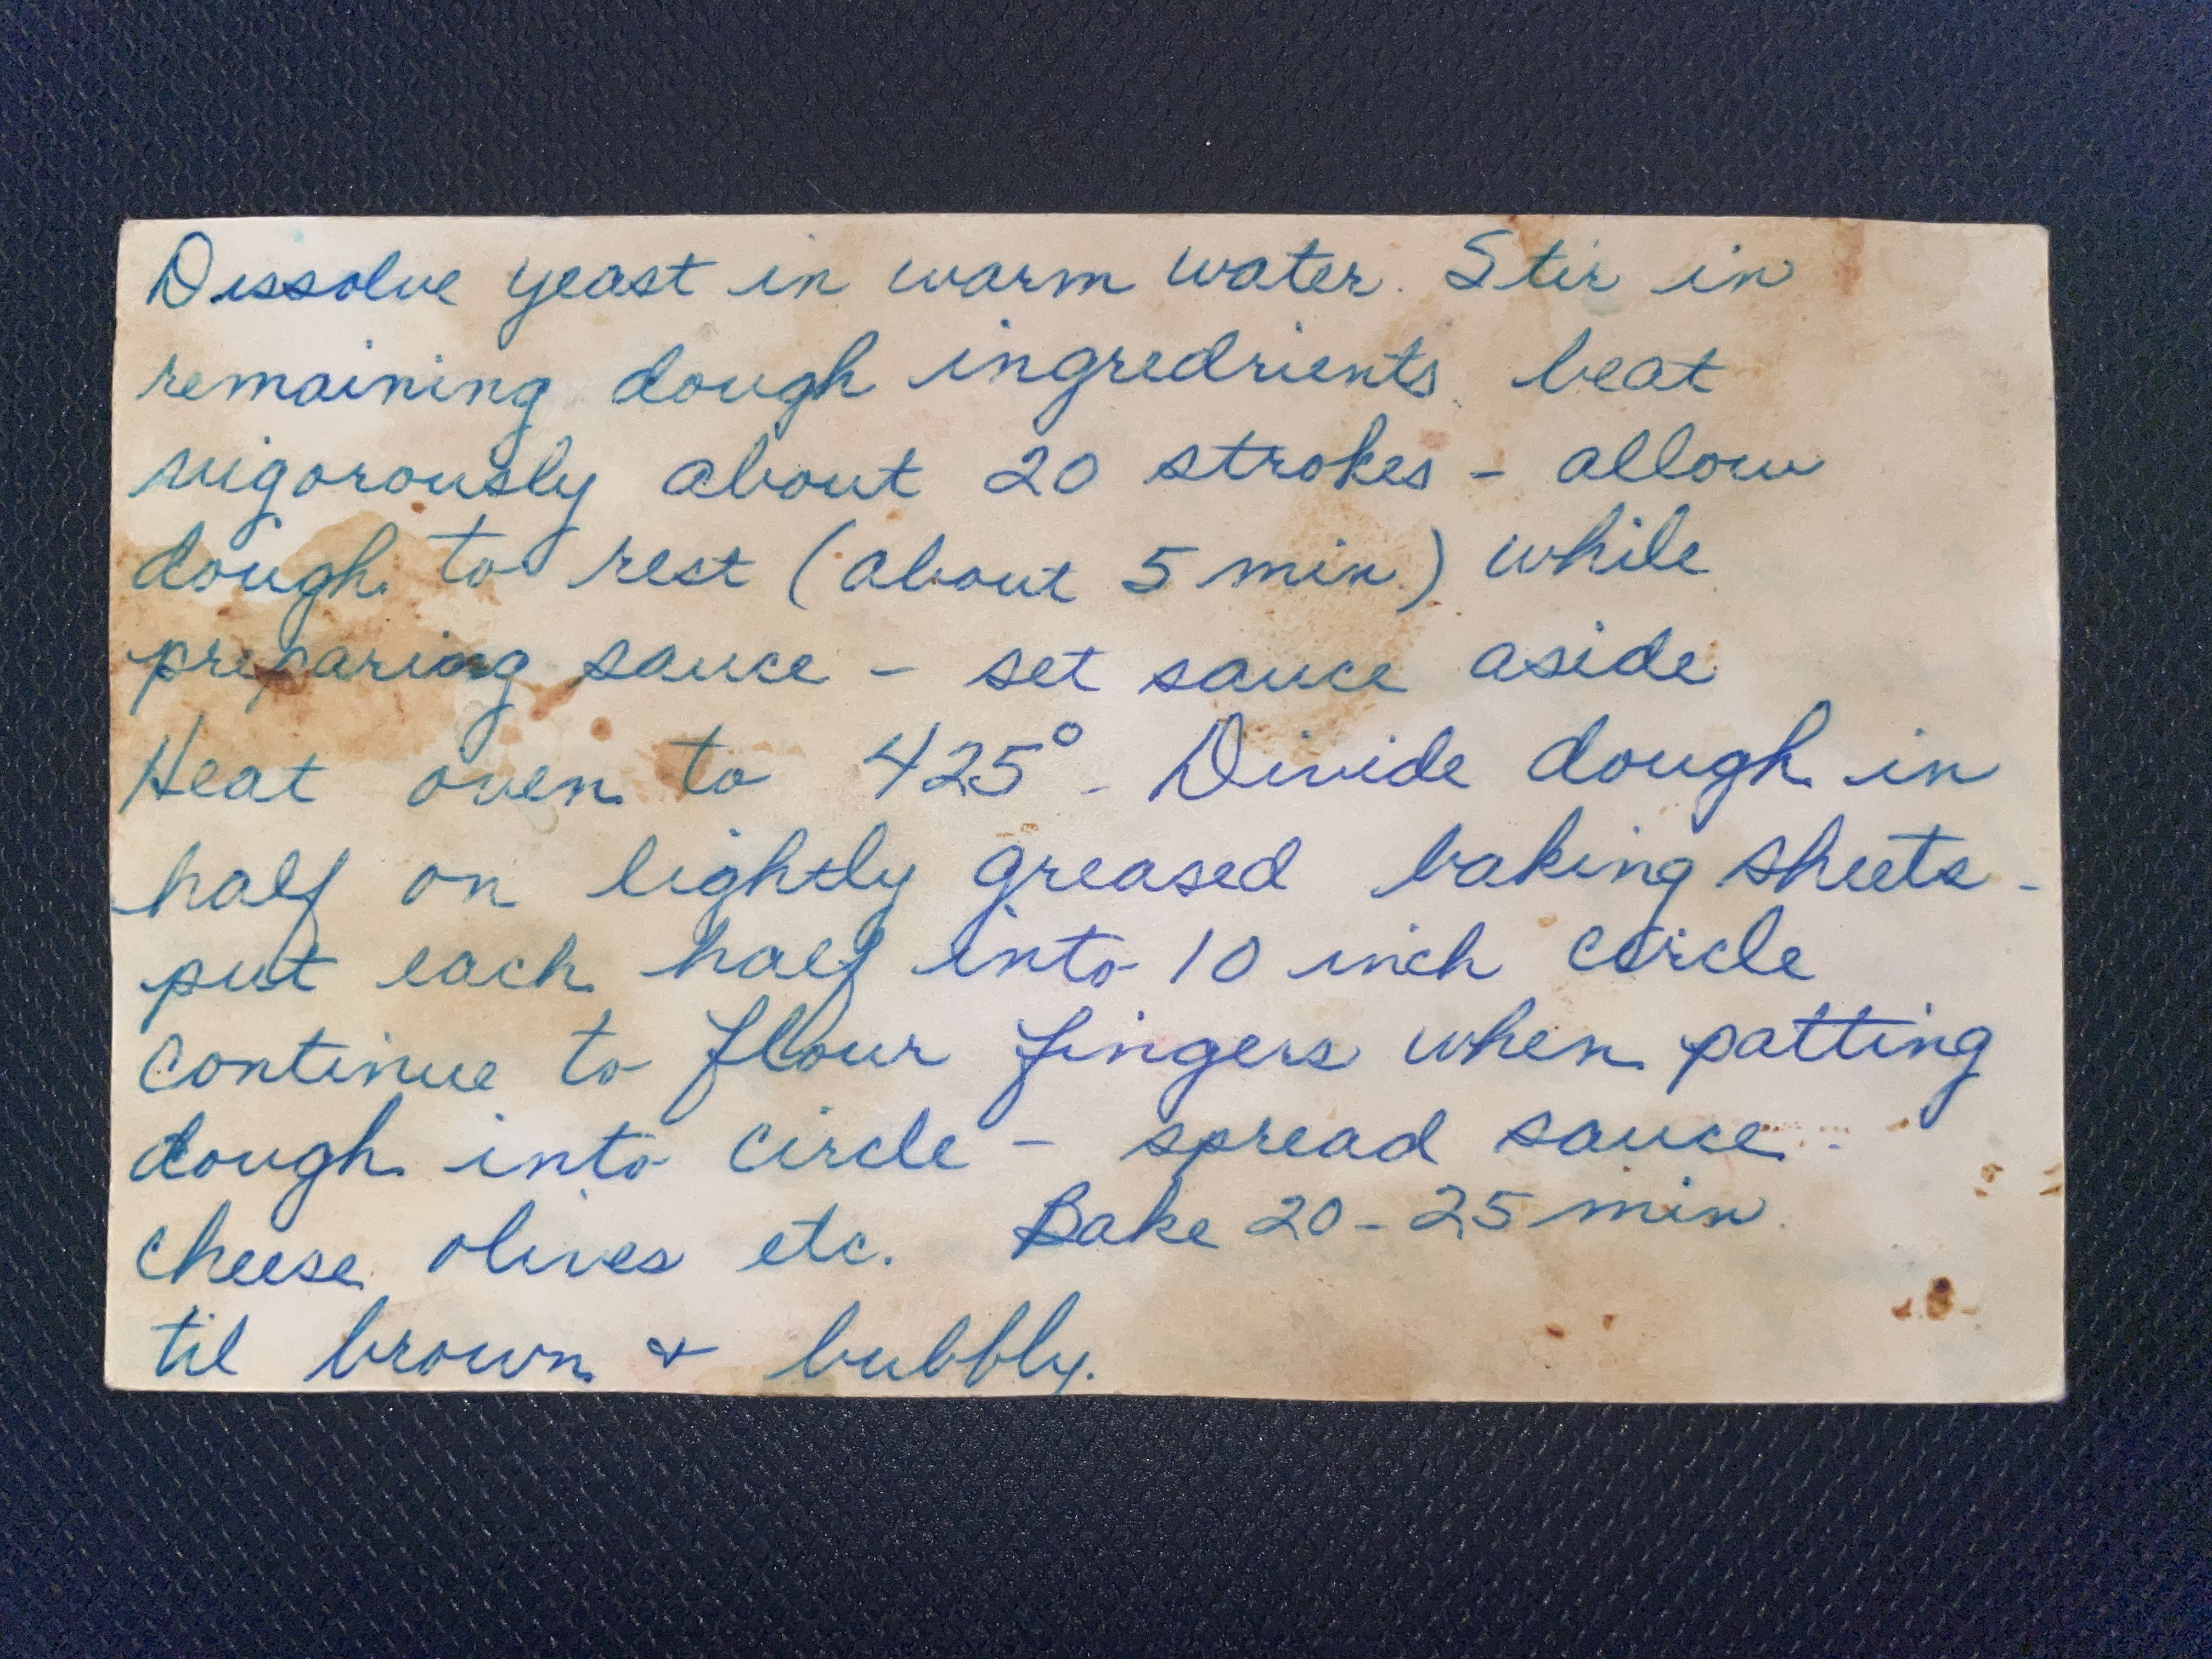 Dissolve yeast in warm water. Stir in
remaining dough ingredrients. beat
vigorously about 20 strokes - allow
dough to rest (about 5 min.) while
preparing sauce - set sauce aside
Heat oven to 425° - Divide dough in
half on lightly greased baking sheets -
put each half into 10 inch circle
continue to flour fingers when patting
dough into circle - spread sauce
cheese olives etc. Bake 20-25 min.
til brown & bubbly.